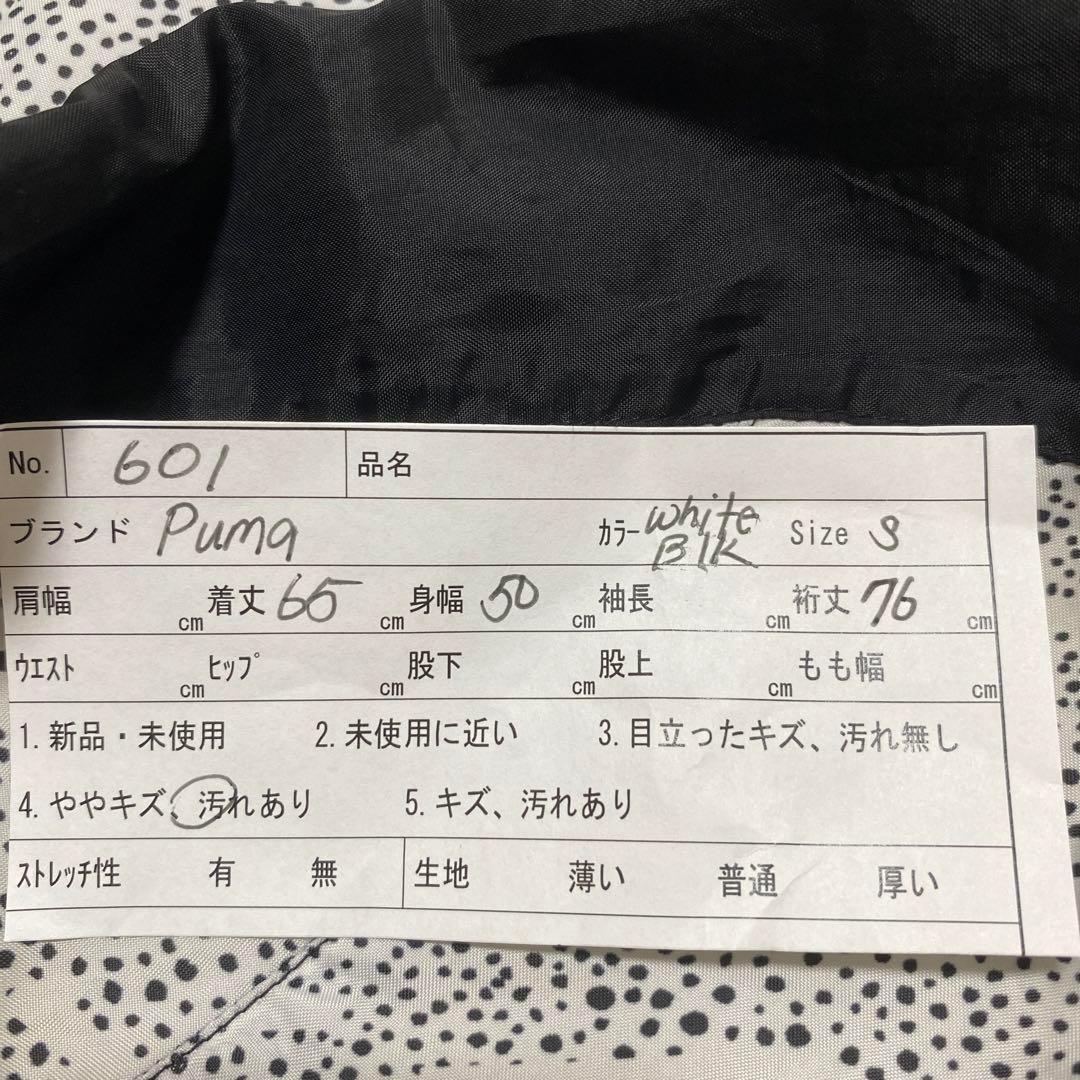 No. 601 品名
ブランド Puma カラー White Blk Size S
肩幅 cm 着丈 65 cm 身幅 50 cm 袖長 cm 裄丈 76 cm
ウエスト cm ヒップ cm 股下 cm 股上 cm もも幅 cm
1. 新品・未使用 2. 未使用に近い 3. 目立ったキズ、汚れ無し
4. ややキズ、汚れあり 5. キズ、汚れあり
ストレッチ性 有 無 生地 薄い 普通 厚い